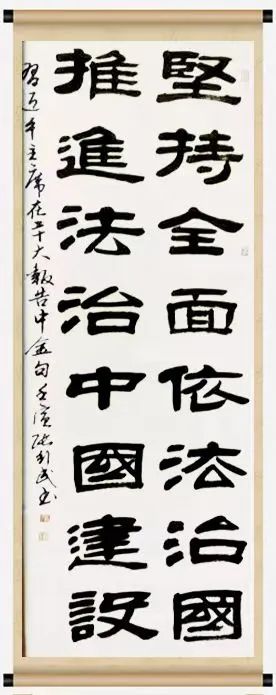 堅持全面依法治國
推進法治中國建設
習近平主席在二十大報告中金句壬寅利民书